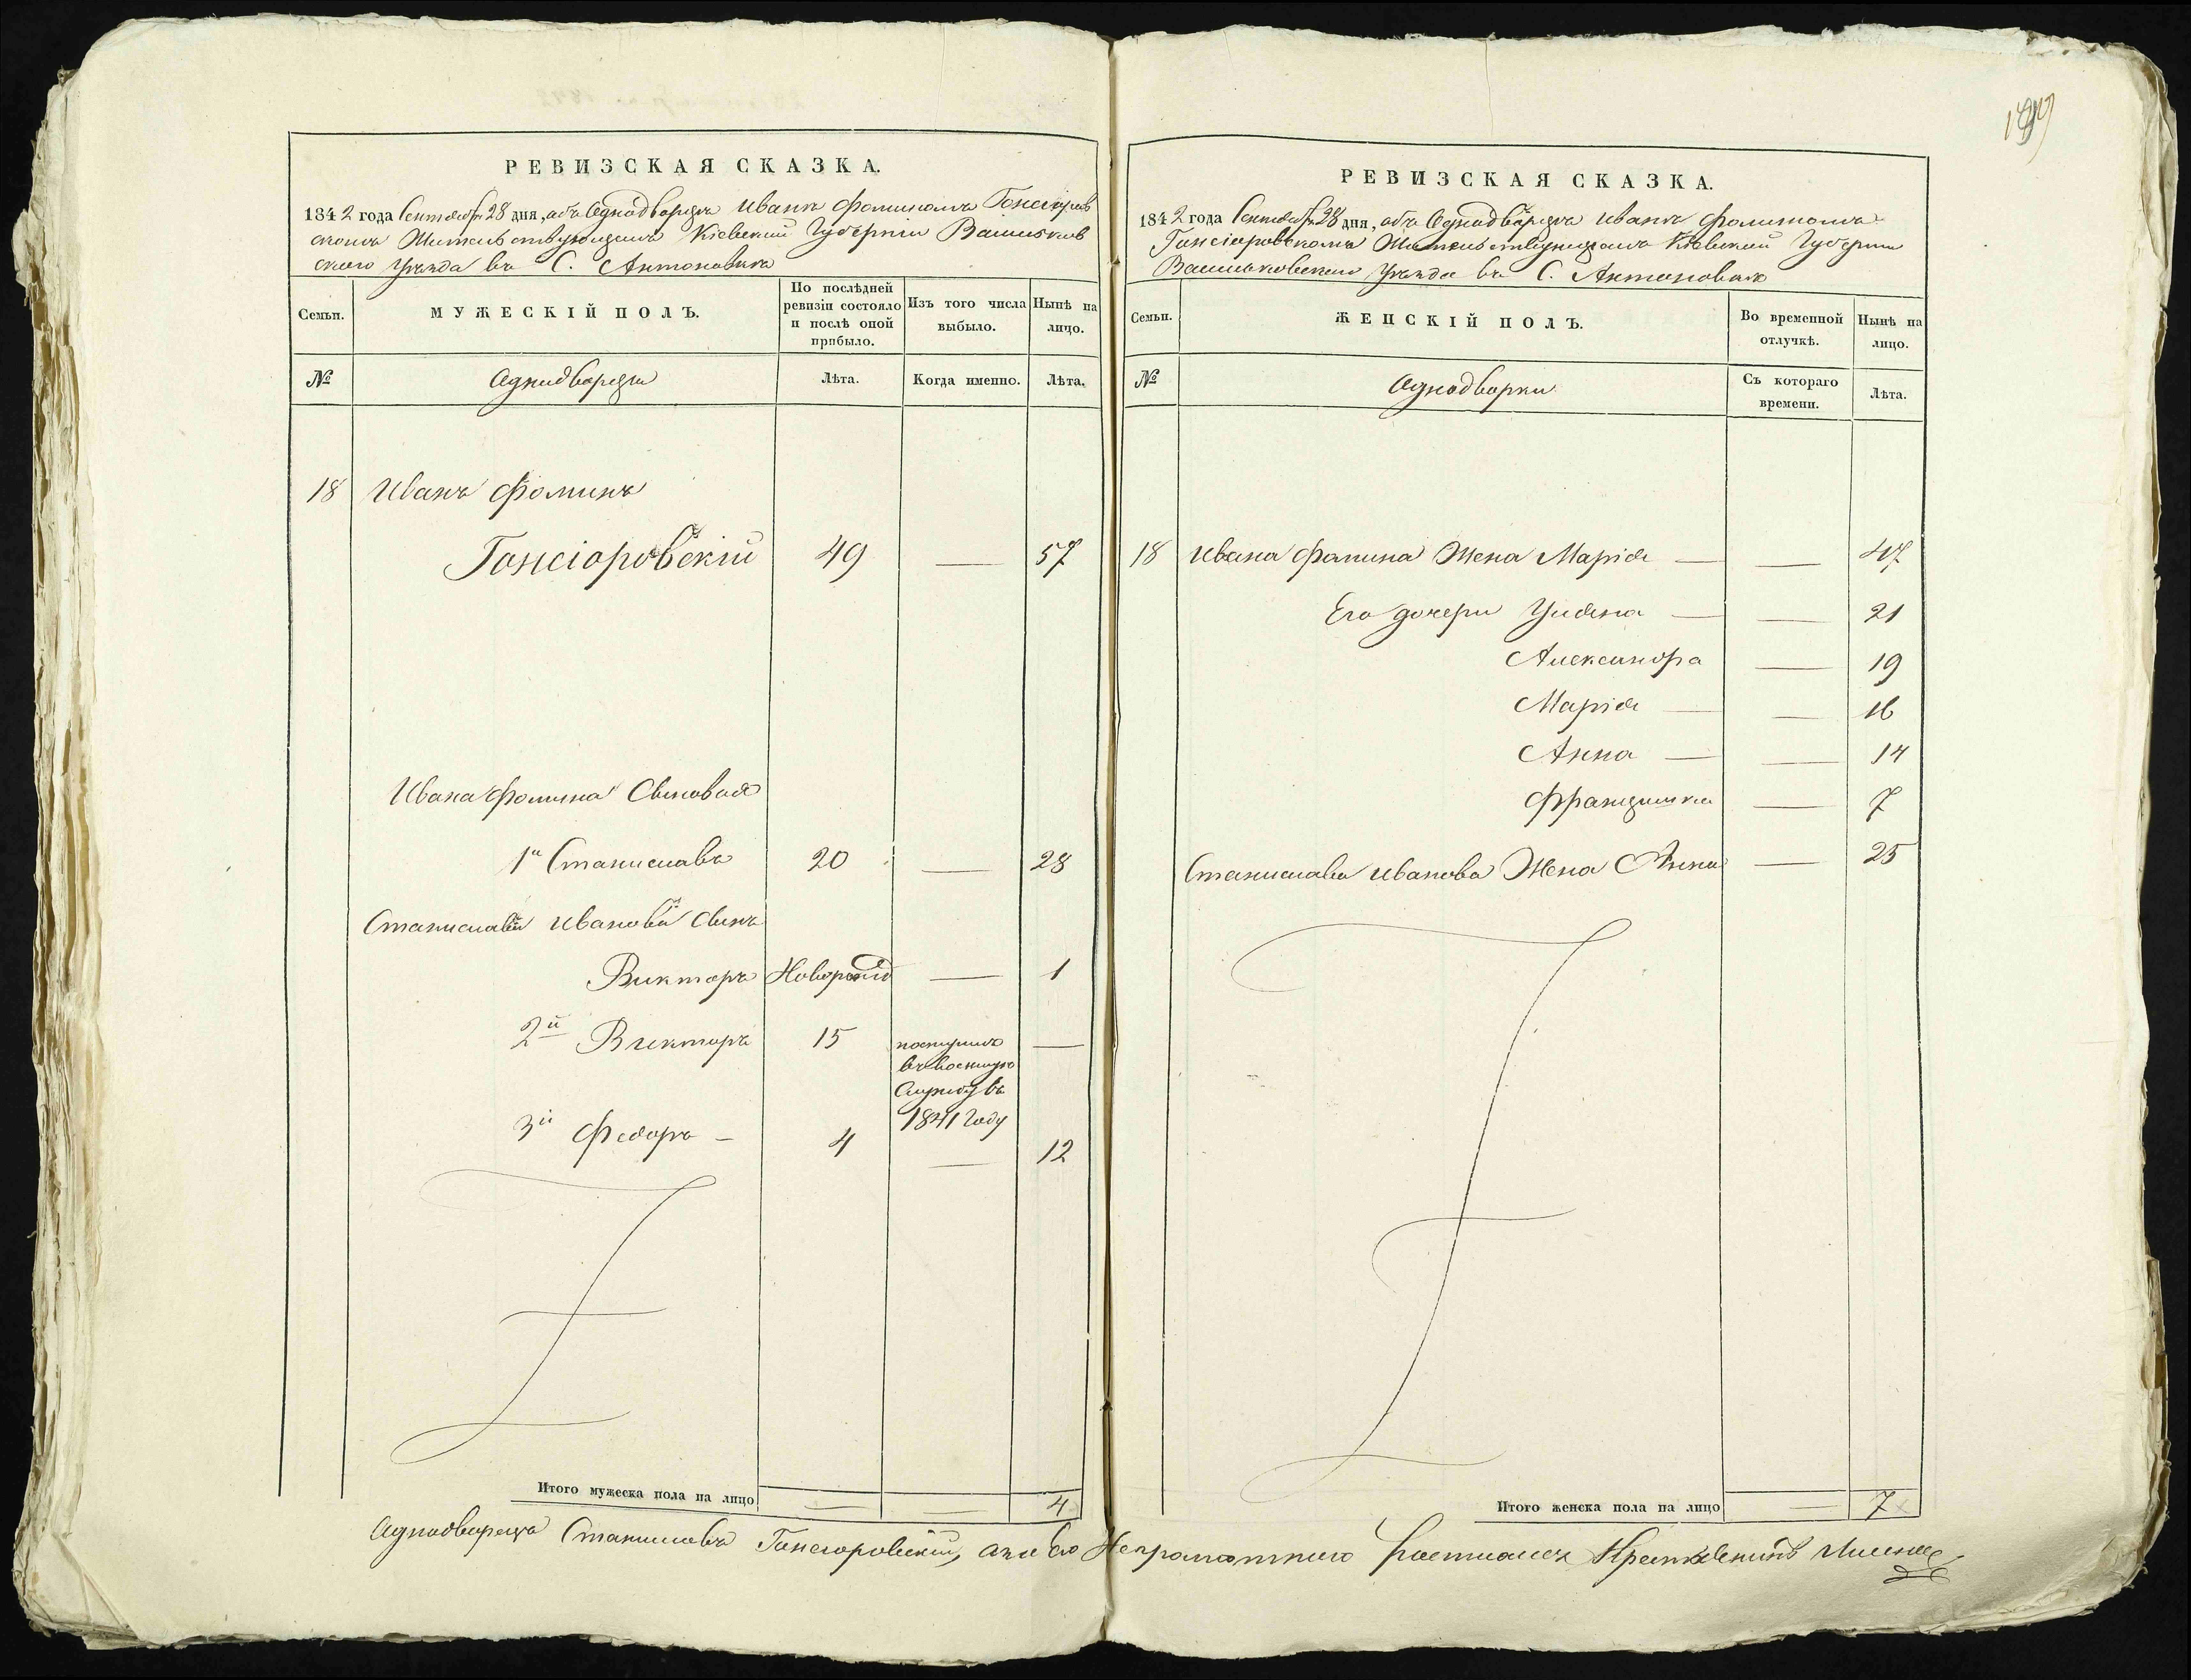 199
РЕВИЗСКАЯ СКАЗКА.
1842 года Сентября 28 дня, объ Однодворцѣ Иванѣ Фоминомъ Гонсіоров
скомъ Жительствующемъ Кіевской Губерніи Васильков
скаго уѣзда въ С. Антоновкѣ
Семьи.
МУЖЕСКІЙ ПОЛЪ.
По послѣдней ревизіи состояло и послѣ оной прибыло.
Изъ того числа выбыло.
Нынѣ на лицо.
№
Однодворцы
Лѣта.
Когда именно.
Лѣта.
18 Иванъ Фоминъ
Гонсіоровскій 49 — 57
Ивана Фомина Сыновья
1й Станиславъ 20 — 28
Станислава Иванова Сынъ
Викторъ Новорожд — 1
2й Викторъ 15 поступилъ —
въ военную
Службу въ
1841 Году
3й Федоръ — 4 — 12
Итого мужеска пола на лицо — — 4
РЕВИЗСКАЯ СКАЗКА.
1842 года Сентября 28 дня, объ Однодворцѣ Иванѣ Фоминомъ
Гонсіоровскомъ Жительствующемъ Кіевской Губерніи
Васильковскаго уѣзда въ С. Антоновкѣ
Семьи.
ЖЕНСКІЙ ПОЛЪ.
Во временной отлучкѣ.
Нынѣ на лицо.
№
Однодворки
Съ котораго времени.
Лѣта.
18 Ивана Фомина Жена Марія — — 47
Его дочери Уліяна — — 21
Александра — 19
Марія — — 16
Анна — — 14
Францишка — 7
Станислава Иванова Жена Анна — 25
Итого женска пола на лицо — 7
Однодворецъ Станиславъ Гонсіоровскій, а за его Неграмотнаго росписался